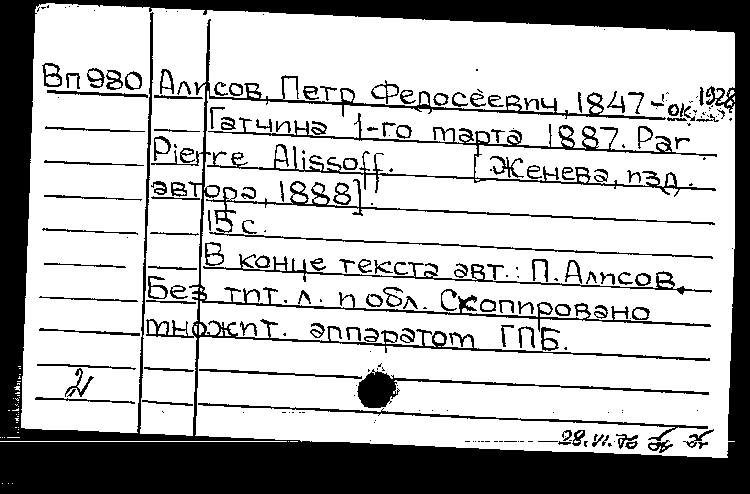 Вп980 Алисов, Петр Федосеевич, 1847 - ок. 1928
Гатчина 1-го марта 1887. Par
Pierre Alissoff. [Женева, изд.
автора, 1888].
15 с.
В конце текста авт.: П. Алисов.
Без тит. л. и обл. Скопировано
множит. аппаратом ГПБ.
28.VI.76